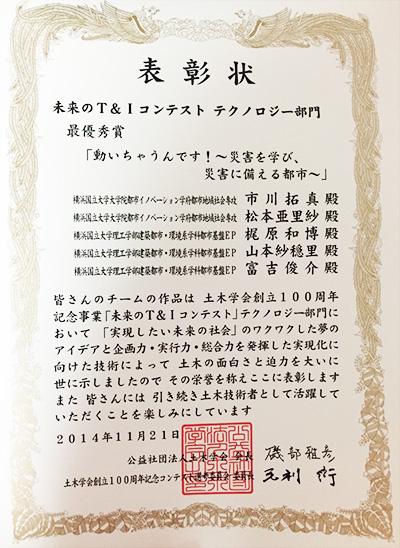 表彰状
未来のT&Iコンテスト テクノロジー部門
最優秀賞
「動いちゃうんです!～災害を学び、
災害に備える都市～」
横浜国立大学大学院都市イノベーション学府都市地域社会専攻 市川拓真 殿
横浜国立大学大学院都市イノベーション学府都市地域社会専攻 松本亜里紗 殿
横浜国立大学理工学部建築都市・環境系学科都市基盤EP 梶原和博 殿
横浜国立大学理工学部建築都市・環境系学科都市基盤EP 山本紗穏里 殿
横浜国立大学理工学部建築都市・環境系学科都市基盤EP 富吉俊介 殿
皆さんのチームの作品は 土木学会創立100周年
記念事業「未来のT&Iコンテスト」テクノロジー部門に
おいて 「実現したい未来の社会」のワクワクした夢の
アイデアと企画力・実行力・総合力を発揮した実現化に
向けた技術によって 土木の面白さと迫力を大いに
世に示しましたので その栄誉を称えここに表彰します
また 皆さんには 引き続き土木技術者として活躍して
いただくことを楽しみにしています
2014年11月21日
公益社団法人土木学会 会長 磯部雅彦
土木学会創立100周年記念コンテスト選考委員会 委員長